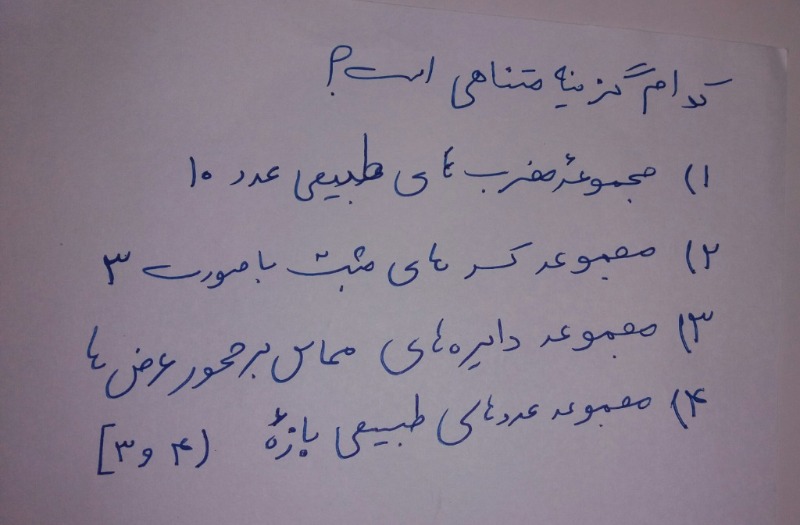 کدام گزینه متناهی است؟
۱) مجموعهٔ مضرب های طبیعی عدد ۱۰
۲) مجموعه کسر های مثبت با صورت ۳
۳) مجموعه دایره‌های مماس بر محور عرض ها
۴) مجموعه عددهای طبیعی بازهٔ [۳ و ۴)